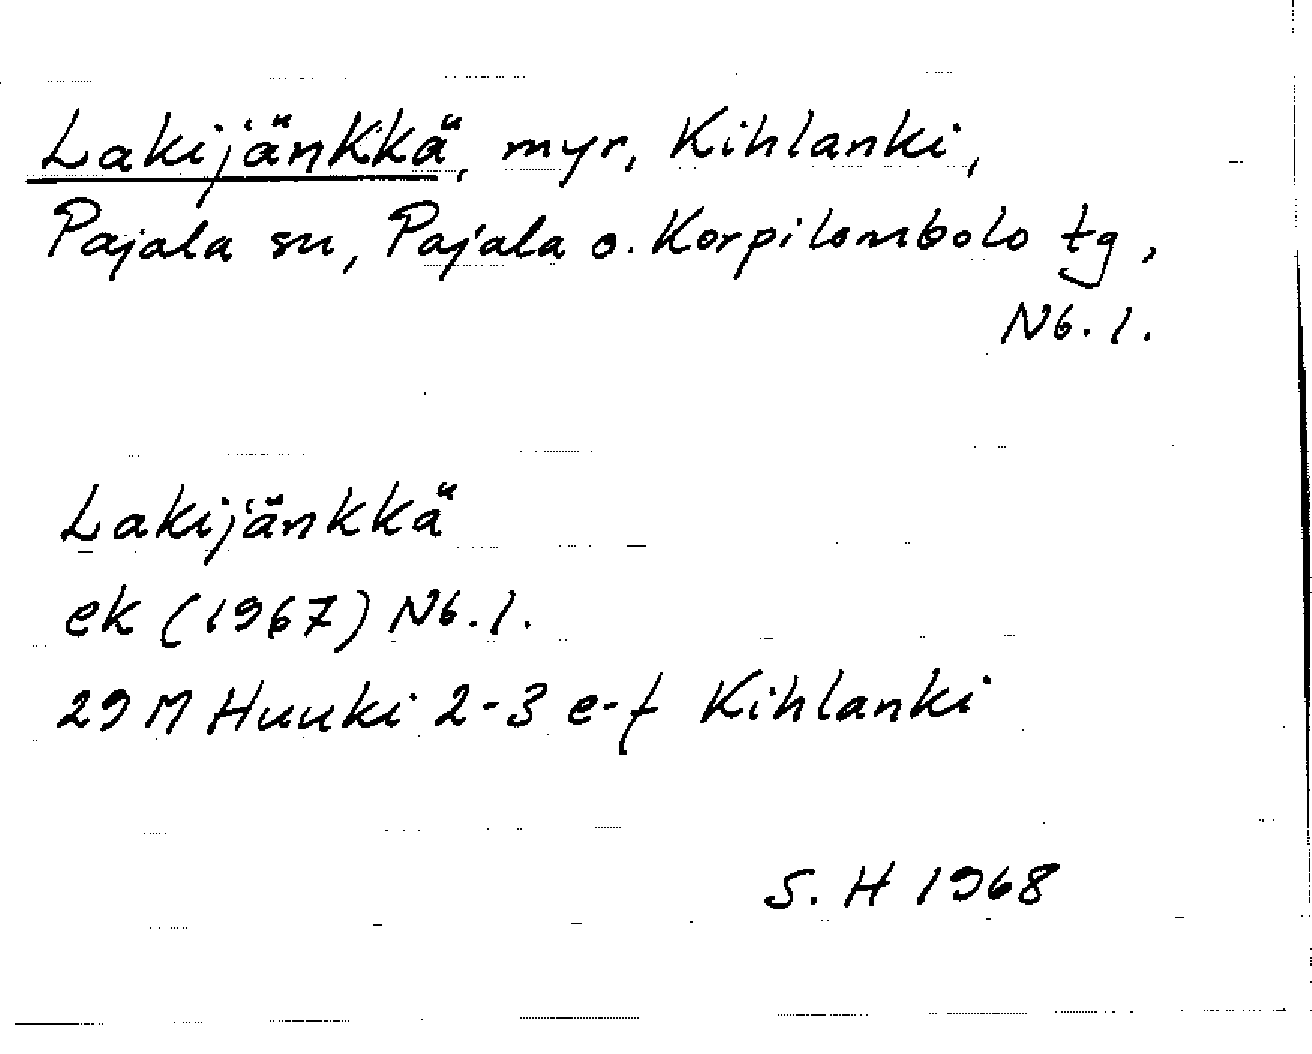 Lakijänkkä, myr, Kihlanki,
Pajala sn, Pajala o. Korpilombolo tg,
Nb. l.
Lakijänkkä
ek (1967) Nb. l.
29 M Huuki 2-3 e-f Kihlanki
S. H 1968